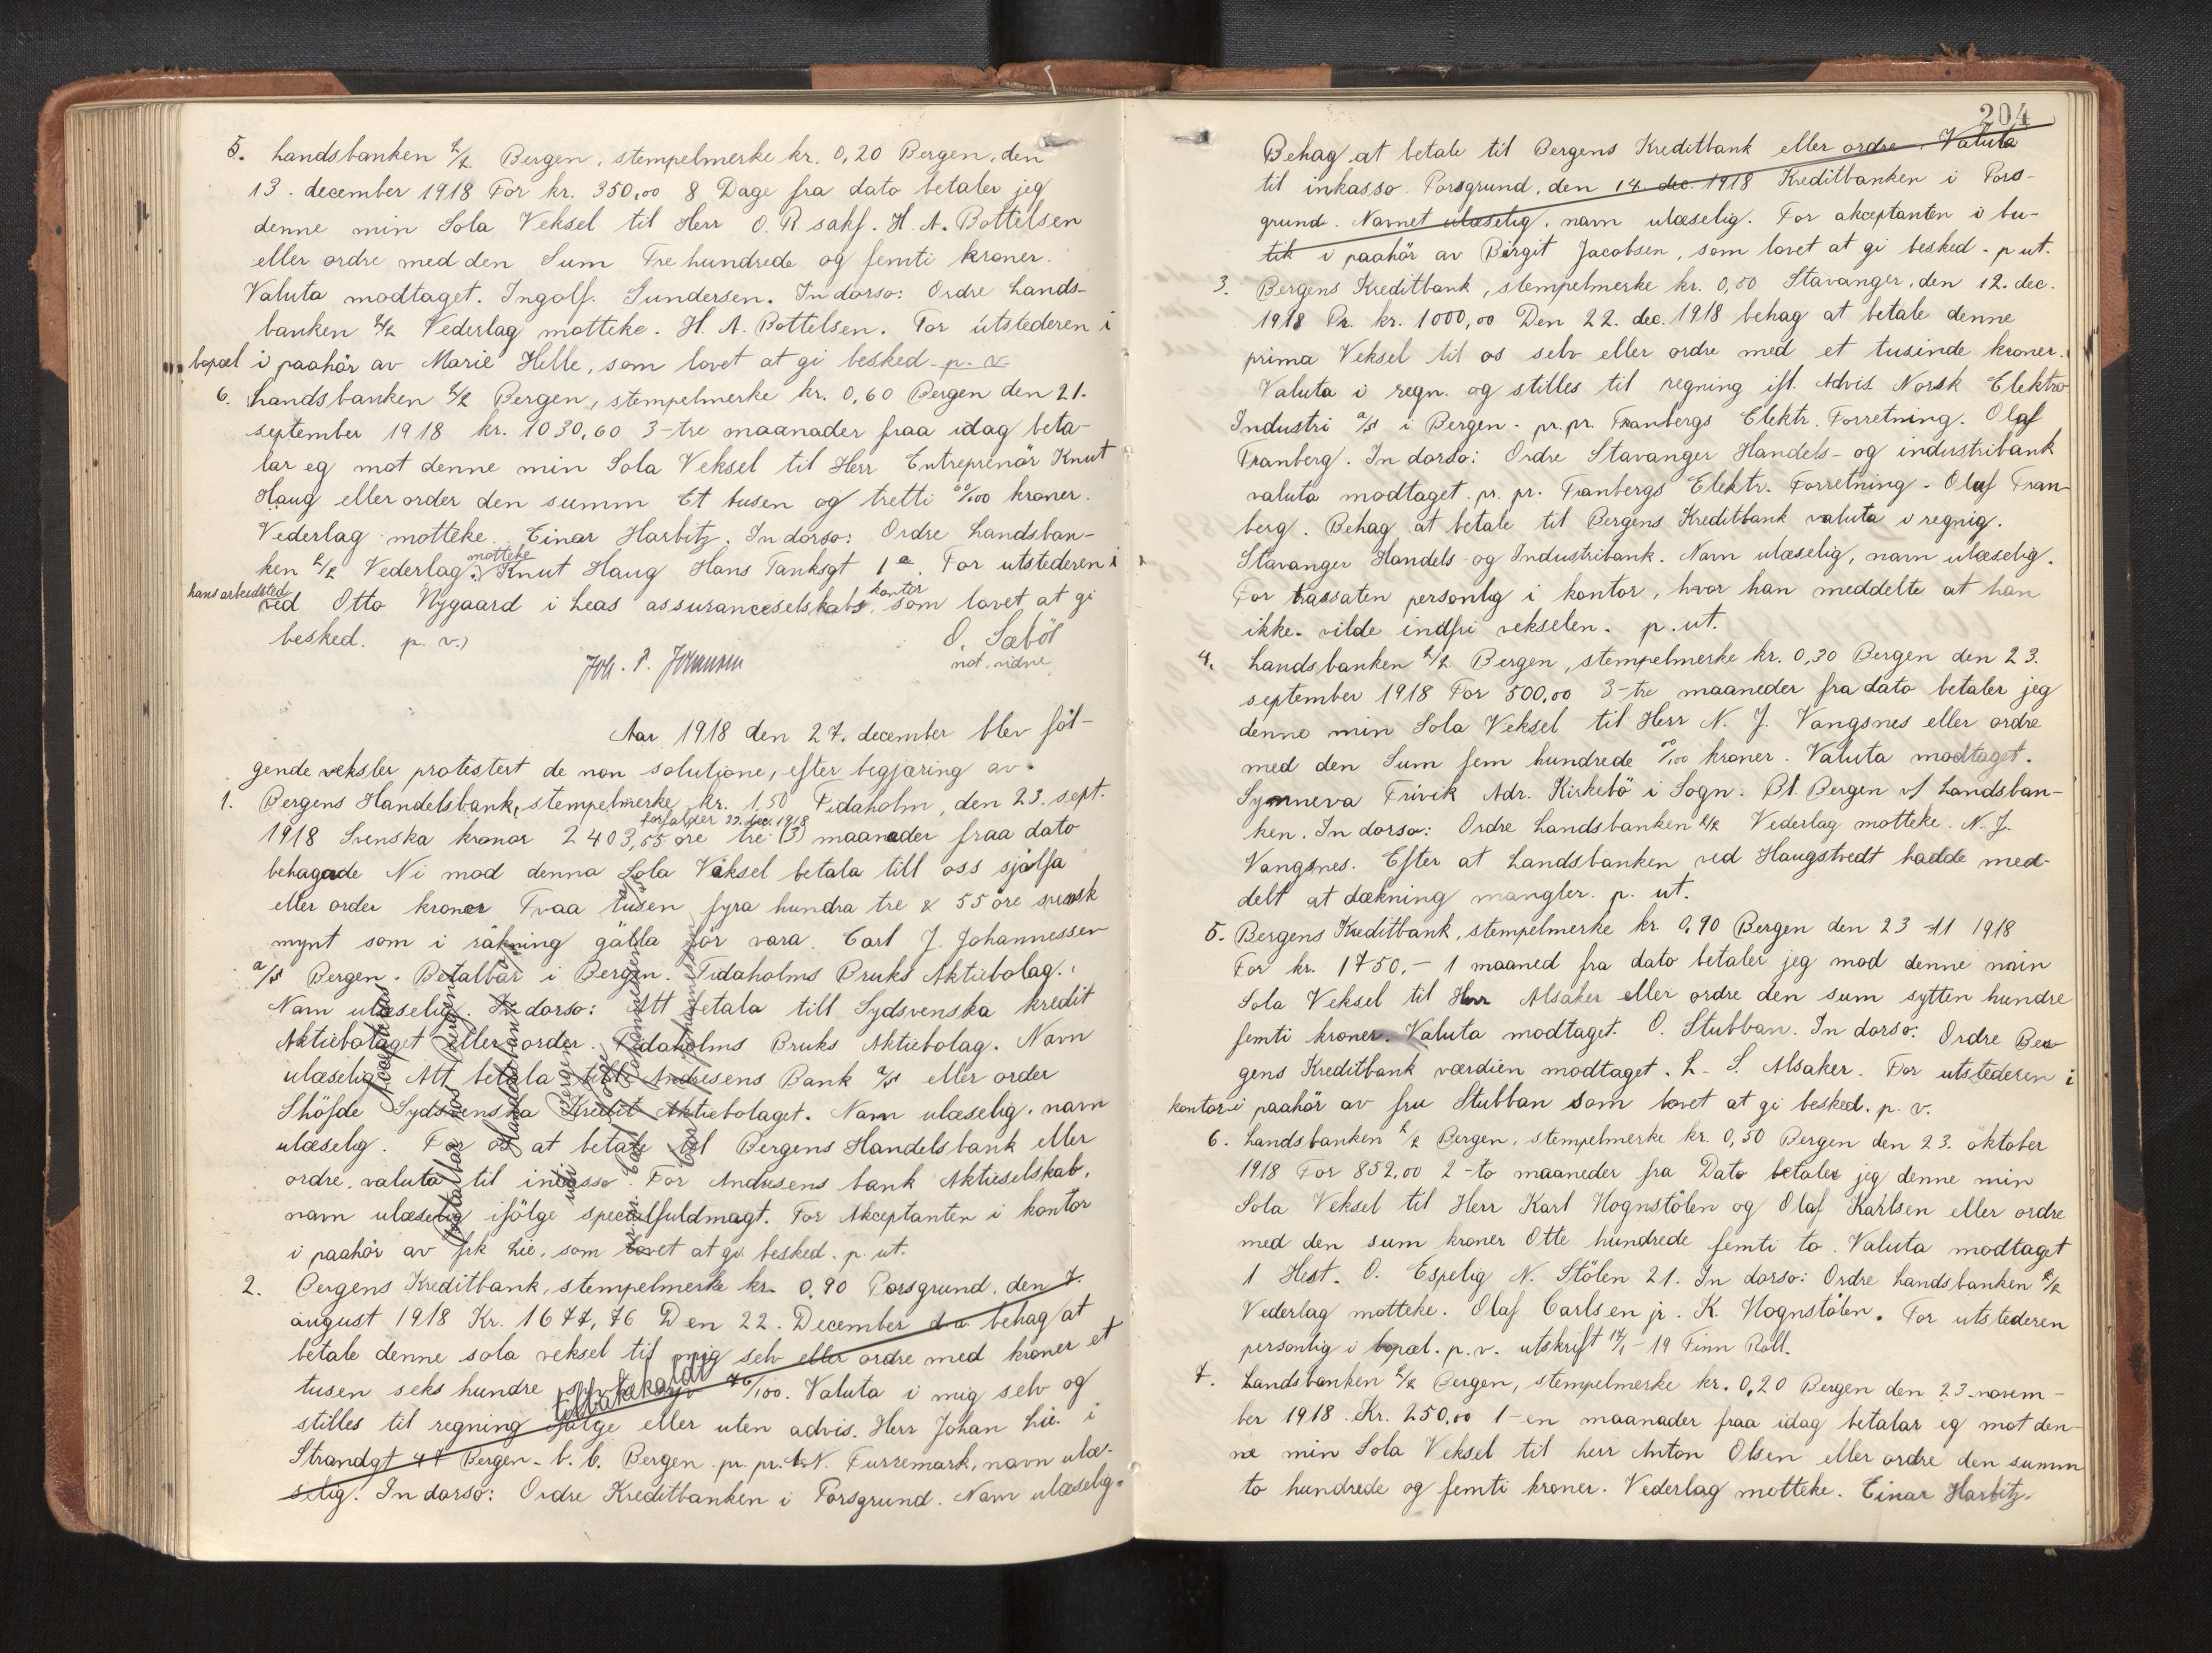 5. Landsbanken A/L Bergen, stempelmerke kr. 0,20 Bergen, den
13. december 1918 For kr. 350,00 8 Dage fra dato betaler jeg
denne min Sola Veksel til Herr O. R. sakf. H. A. Bottelsen
eller ordre med den Sum Tre hundrede og femti kroner.
Valuta modtaget. Ingolf. Gundersen. In dorso: Ordre Lands-
banken A/L Vederlag motteke. H. A. Bottelsen. For utstederen i
bopæl i paahör av Marie Helle, som lovet at gi besked. p. v.
6. Landsbanken A/L Bergen, stempelmerke kr. 0,60 Bergen den 21.
september 1918 kr. 1030,60 3-tre maanader fraa idag beta-
lar eg mot denne min Sola Veksel til Herr Entreprenör Knut
Haug eller order den summ Et tusen og tretti 60/100 kroner.
Vederlag motteke. Einar Harbitz. In dorso: Ordre Landsban-
ken A/L Vederlag motteke. Knut Haug Hans Tanksgt 1 a. For utstederen i
hans arbeidsted ved Otto Nygaard i Leas assuranceselskabs kontor, som lovet at gi
besked. p. v.)
Joh. P. Johnsen
O. Sæböl
not. vidne
Aar 1918 den 27. december blev föl-
gende veksler protestert de non solutione, efter begjæring av.
1. Bergens Handelsbank, stempelmerke kr. 1,50 Tidaholm, den 23. sept.
forfalder 23. dec. 1918
1918 Svenska kronor 2403,55 öre tre (3) maanader fraa dato
behagade Ni mod denna Sola Växel betala till oss sjålfa
eller order kroner Tvaa tusen fyra hundra tre & 55 öre svensk
mynt som i räkning gälla för vara. Carl J. Johannessen
A/S Bergen. Betalbar i Bergen. Tidaholms Bruks Aktiebolag.
Navn ulæselig. In dorso: Att betala till Sydsvenska kredit
Aktiebolaget eller order. Tidaholms Bruks Aktiebolag. Navn
ulæselig. Att betala till Andresens Bank A/S eller order
Shöfde Sydsvenska Kredit Aktiebolaget. Navn ulæselig. navn
ulæselig. For os at betale til Bergens Handelsbank eller
ordre. valuta til incasso. For Andresens bank Aktieselskab,
navn ulæselig ifölge specialfuldmagt. For Akceptanten i kontor
i paahör av frk Lie, som lovet at gi besked. p. ut.
Accepteras
Betalbar hos Bergens
Handelsbank
Bergen
2. Bergens Kreditbank, stempelmerke kr. 0,90 Porsgrund, den 7.
august 1918 Kr. 1677,76 Den 22. December d.a. behag at
betale denne sola veksel til mig selv eller ordre med kroner et
tusen seks hundre sytti syv 76/100. Valuta i mig selv og
tilbakekaldt
stilles til regning ifölge eller uten advis. Herr Johan Lie i
Strandgt 47 Bergen. b. b. Bergen pr. pr. A. N. Furremark, navn ulæ-
selig. In dorso: Ordre Kreditbanken i Porsgrund. Navn ulæselig.
204
Behag at betale til Bergens Kreditbank eller ordre. Valuta
til inkasso. Porsgrund, den 14. dec. 1918 Kreditbanken i Pors-
grund. Navnet ulæselig, navn ulæselig. For akceptanten i bu-
tik i paahör av Birgit Jacobsen, som lovet at gi besked. p ut.
3. Bergens Kreditbank, stempelmerke kr. 0,50 Stavanger, den 12. dec.
1918 Pr. kr. 1000,00 Den 22. dec. 1918 behag at betale denne
prima Veksel til os selv eller ordre med et tusinde kroner.
Valuta i regn. og stilles til regning ifl. Advis Norsk Elektro
Industri A/S i Bergen. pr. pr. Tranbergs Elektr. Forretning. Olaf
Tranberg. In dorso: Ordre Stavanger Handels- og industribank
valuta modtaget. pr. pr. Tranbergs Elektr. Forretning. Oluf Tran-
berg. Behag at betale til Bergens Kreditbank valuta i regnig.
Stavanger Handels- og Industribank. Navn ulæselig, navn ulæselig.
For trassaten personlig i kontor, hvor han meddelte at han
ikke. vilde indfri vekselen. p. ut.
4. Landsbanken A/L Bergen, stempelmerke kr. 0,30 Bergen den 23.
september 1918 For 500,00 3-tre maaneder fra dato betaler jeg
denne min Sola Veksel til Herr N. J. Vangsnes eller ordre
med den Sum fem hundrede 00/100 kroner. Valuta modtaget.
Synneva Frivik Adr. Kirkebö i Sogn. Bt. Bergen v/ Landsban-
ken. In dorso: Ordre Landsbanken A/L Vederlag motteke. N. J.
Vangsnes. Efter at Landsbanken ved Haugstvedt hadde med-
delt at dækning mangler. p. ut.
5. Bergens Kreditbank, stempelmerke kr. 0,90 Bergen den 23 -11 1918
For kr. 1750.- 1 maaned fra dato betaler jeg mod denne min
Sola Veksel til Herr Alsaker eller ordre den sum sytten hundre
femti kroner. Valuta modtaget. O. Stubban. In dorso: Ordre Ber-
gens Kreditbank værdien modtaget. L. S. Alsaker. For utstederen i
kontor i paahör av fru Stubban som lovet at gi besked. p. v.
6. Landsbanken A/L Bergen, stempelmerke kr. 0,50 Bergen den 23. oktober
1918 For 852,00 2-to maaneder fra Dato betaler jeg denne min
Sola Veksel til Herr Karl Hognstölen og Olaf Karlsen eller ordre
med den sum kroner Otte hundrede femti to. Valuta modtaget
1 Hest. O. Espelig N. Stölen 21. In dorso: Ordre Landsbanken A/L
Vederlag motteke. Olaf Carlsen jr. K. Hognstölen. For utstederen
personlig i bopæl. p. v. utskrift 17/1 -19 Finn Roll.
7. Landsbanken A/L Bergen, stempelmerke kr. 0,20 Bergen den 23. novem-
ber 1918. Kr. 250,00 1-en maanader fraa idag betalar eg mot den-
ne min Sola Veksel til herr Anton Olsen eller ordre den summ
to hundrede og femti kroner. Vederlag motteke. Einar Harbitz.